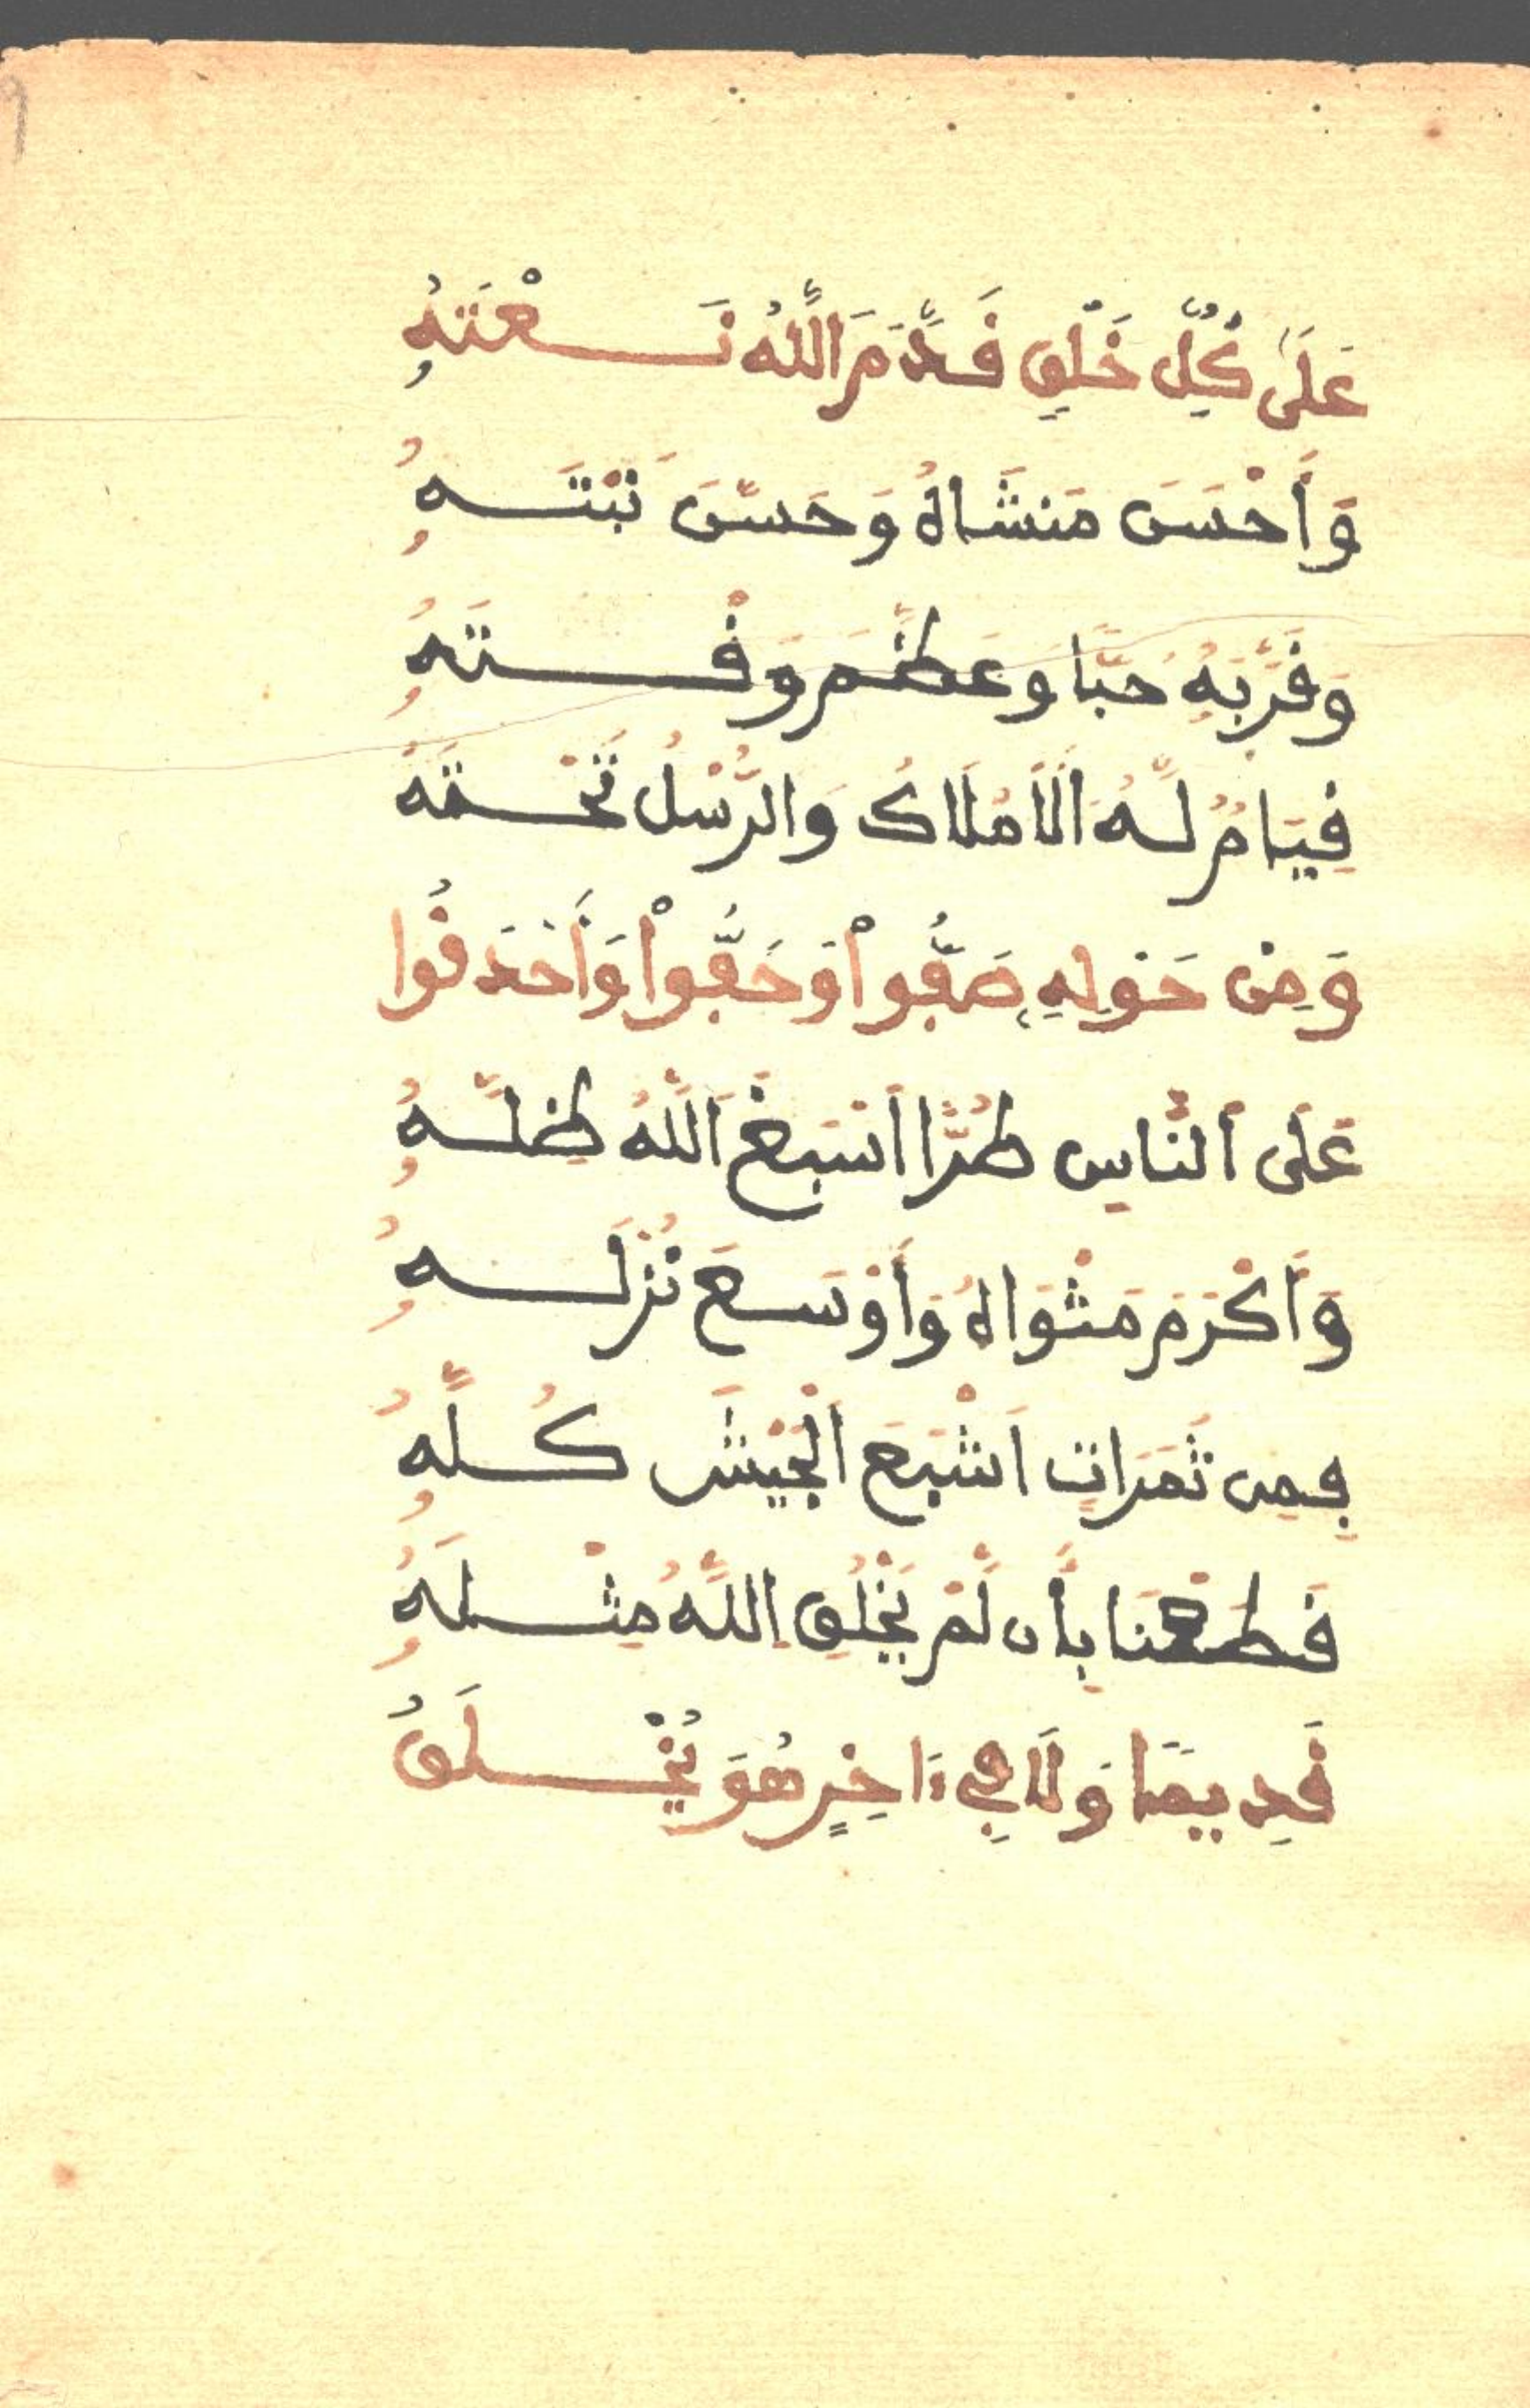 عَلَى كُلِّ خَلْقٍ قَدَّمَ اللَّهُ نَعْتَهُ
وَأَحْسَنَ مَنشَاهُ وَحَسَّنَ نَبْتَهُ
وَقَرَّبَهُ حُبًّا وَعَظَّمَ وَقْتَهُ
قِيَامٌ لَّهُ الَامْلَاكُ وَالرُّسْلُ تَحْتَهُ
وَمِنْ حَوْلِهِ صَفُّواْ وَحَفُّواْ وَأَحْدَقُوا
عَلَى النَّاسِ طُرًّا اَسْبَغَ اللَّهُ ظِلَّهُ
وَأَكْرَمَ مَثْوَاهُ وَأَوْسَعَ نُزْلَهُ
فَمِن ثَمَرَاتٍ اَشْبَعَ الْجَيْشَ كُلَّهُ
قَطَعْنَا بِأَن لَّمْ يَخْلُقِ اللَّهُ مِثْلَهُ
قَدِيمًا وَلَا فِي ءَاخِرٍ هُوَ يُخْلَقُ